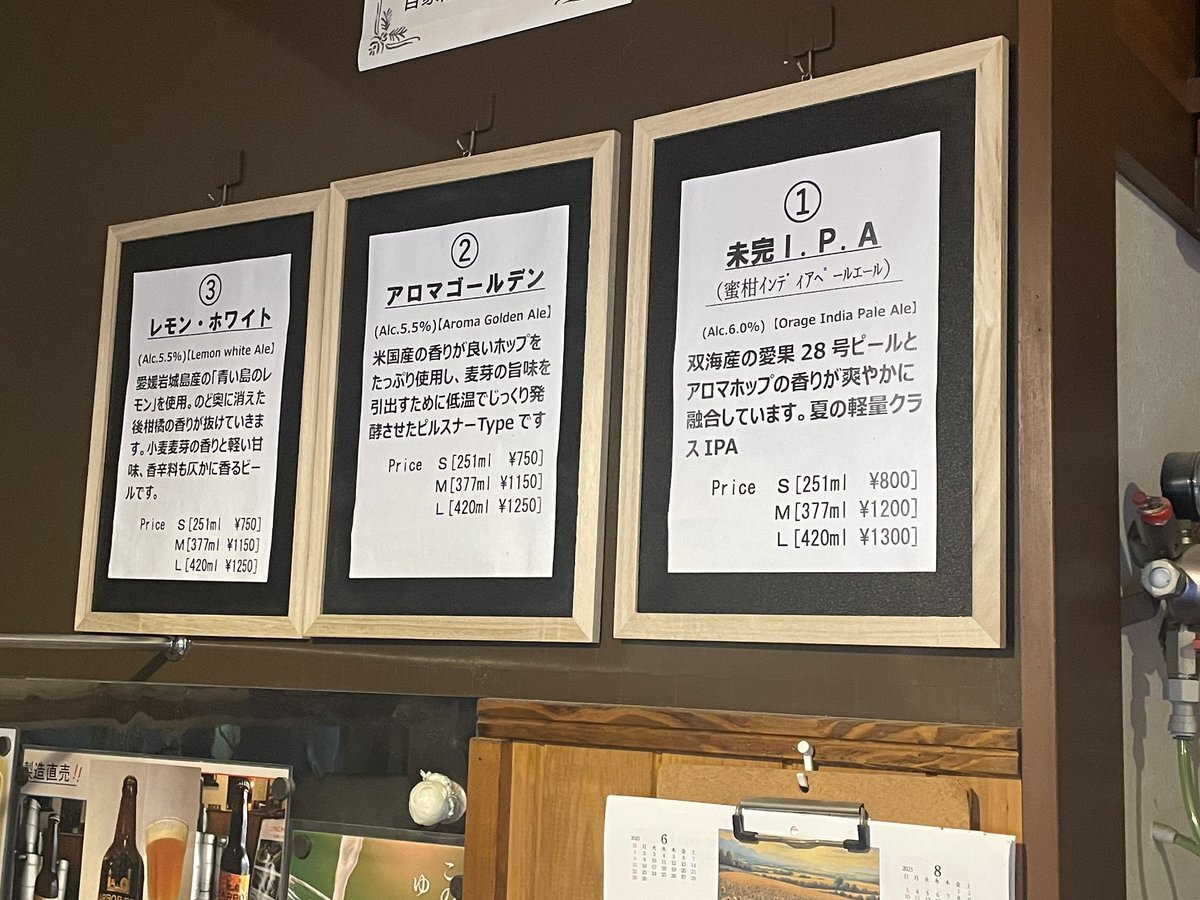 ①
未完I.P.A
(蜜柑インディアペールエール)
(Alc.6.0%)【Orage India Pale Ale】
双海産の愛果28号ピールと
アロマホップの香りが爽やかに
融合しています。夏の軽量クラ
スIPA
Price S[251ml ¥800]
M[377ml ¥1200]
L[420ml ¥1300]
②
アロマゴールデン
(Alc.5.5%)【Aroma Golden Ale】
米国産の香りが良いホップを
たっぷり使用し、麦芽の旨味を
引出すために低温でじっくり発
酵させたピルスナーTypeです
Price S[251ml ¥750]
M[377ml ¥1150]
L[420ml ¥1250]
③
レモン・ホワイト
(Alc.5.5%)【Lemon white Ale】
愛媛岩城島産の「青い島のレ
モン」を使用。のど奥に消えた
後柑橘の香りが抜けていきま
す。小麦麦芽の香りと軽い甘
味、香辛料も仄かに香るビー
ルです。
Price S[251ml ¥750]
M[377ml ¥1150]
L[420ml ¥1250]
製造直売!!
6
8